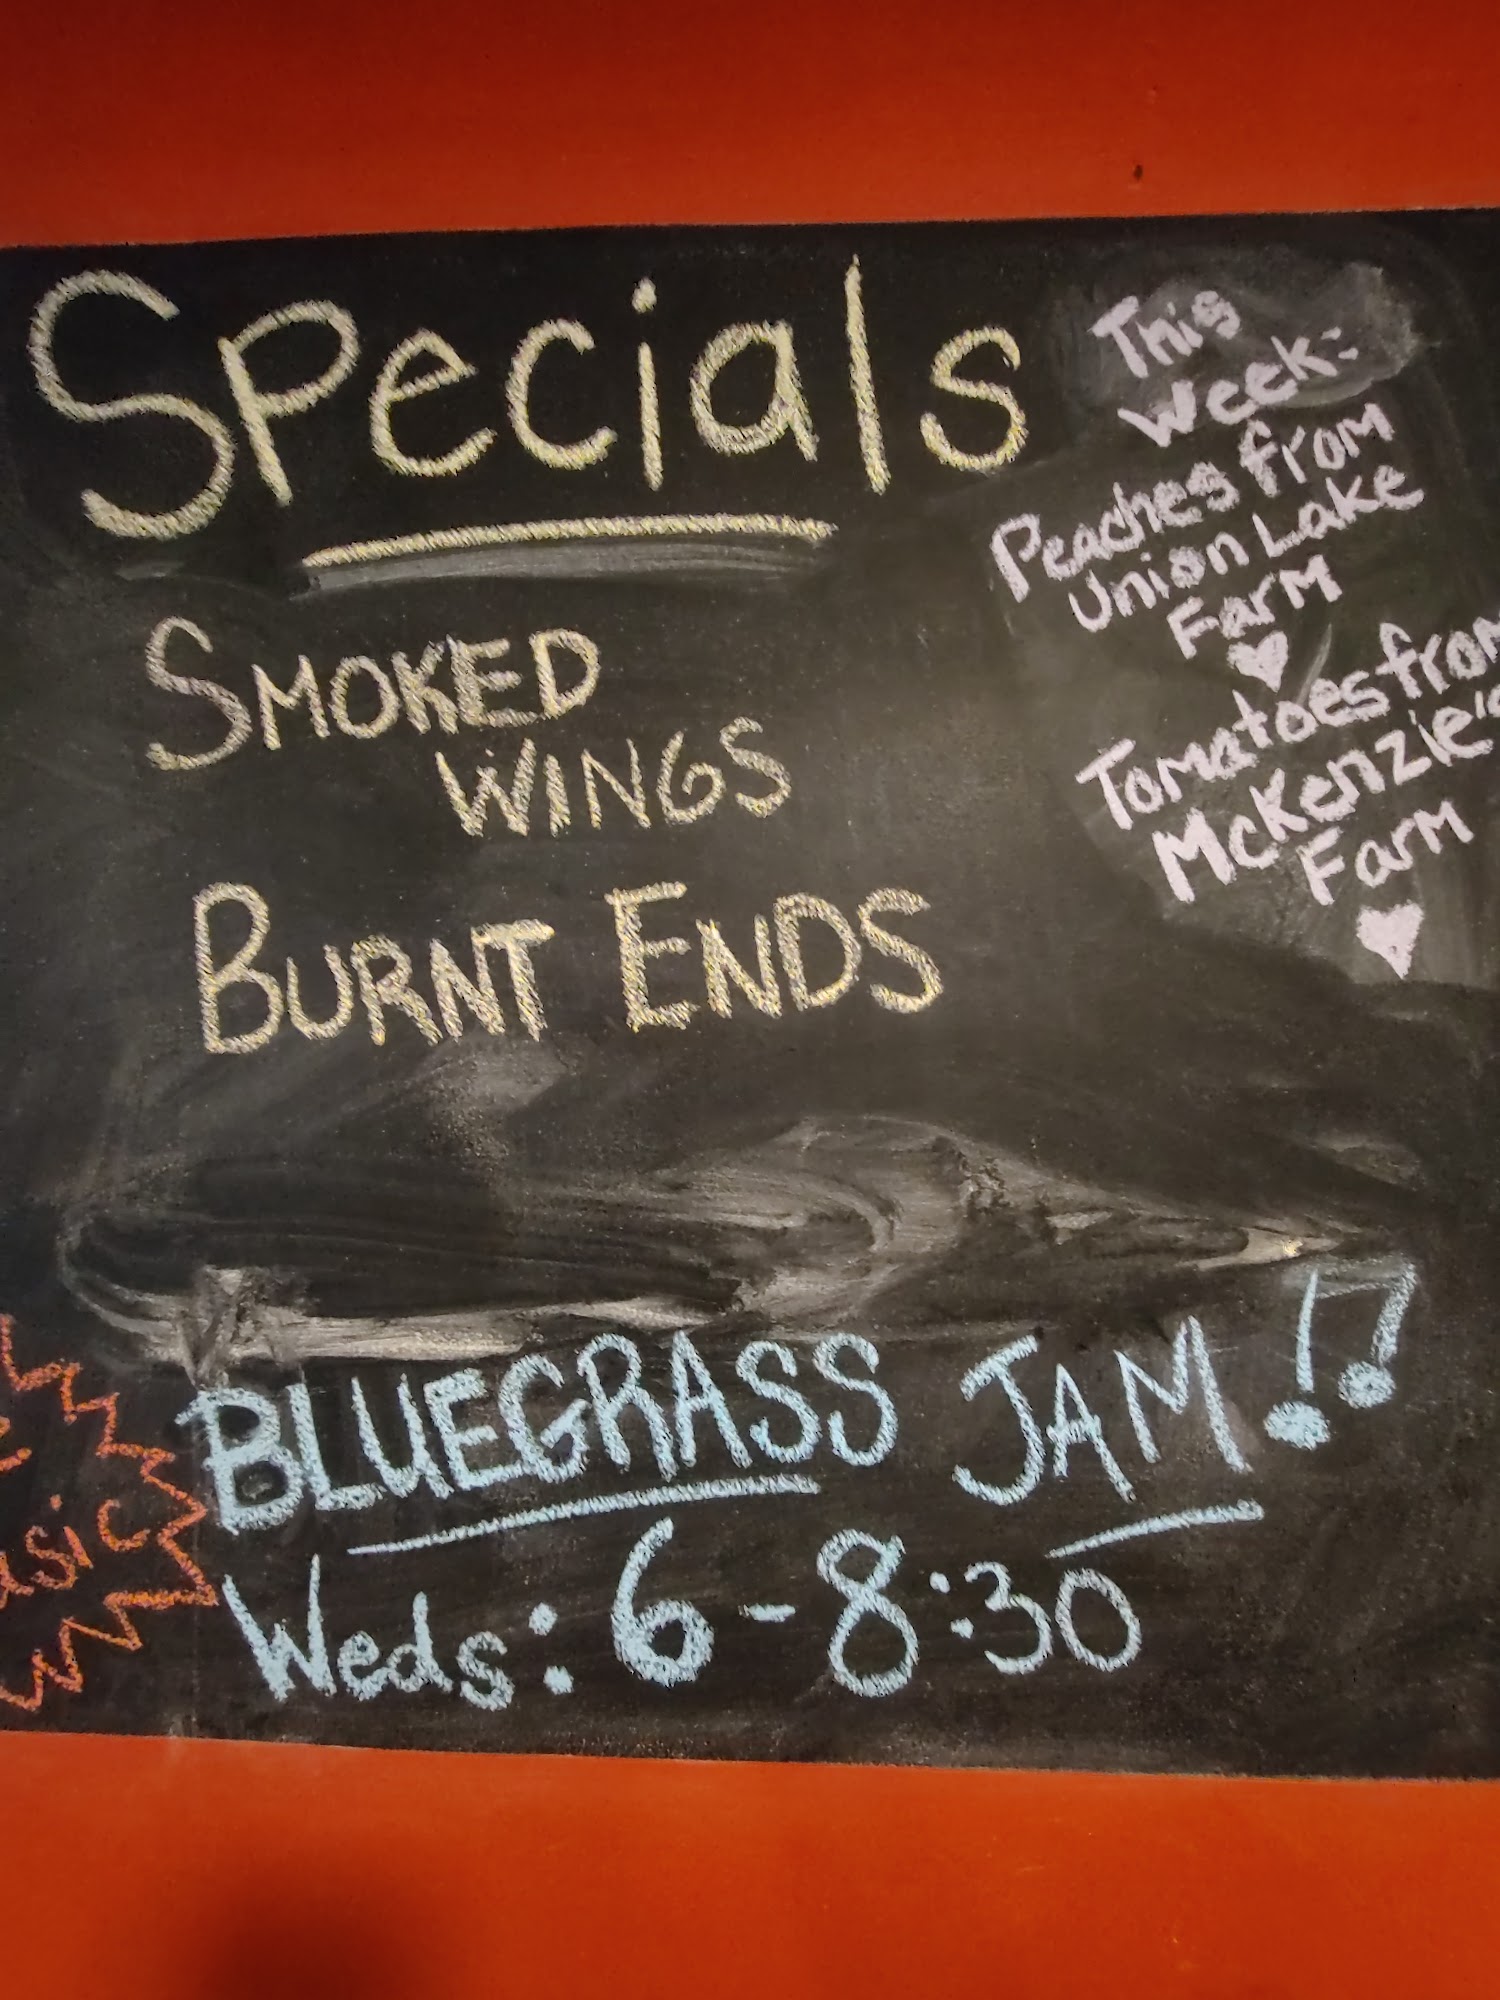 Specials
SMOKED
WINGS
BURNT ENDS
This
Week:
Peaches from
Union Lake
Farm
Tomatoes from
McKenzie's
Farm
BLUEGRASS JAM!!
Weds: 6-8:30